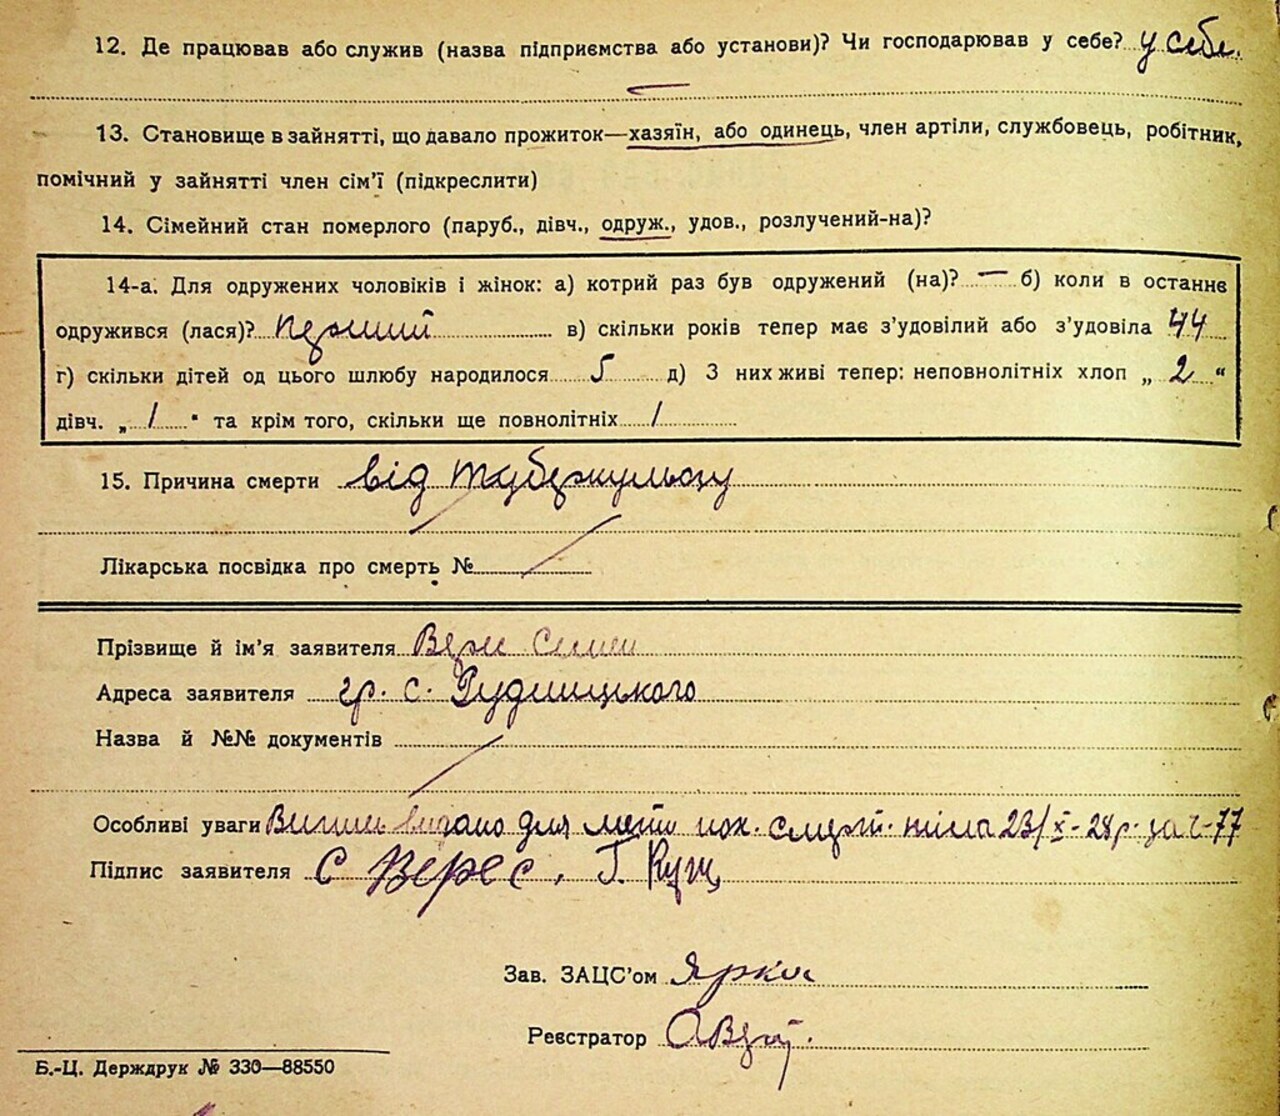 12. Де працював або служив (назва підприємства або установи)? Чи господарював у себе? у себе.
13. Становище в зайнятті, що давало прожиток—хазяїн, або одинець, член артіли, службовець, робітник,
помічний у зайнятті член сім'ї (підкреслити)
14. Сімейний стан померлого (паруб., дівч., одруж., удов., розлучений-на)?
14-а. Для одружених чоловіків і жінок: а) котрий раз був одружений (на)? — б) коли в останнє
одружився (лася)? перший в) скільки років тепер має з'удовілий або з'удовіла 44
г) скільки дітей од цього шлюбу народилося 5 д) З них живі тепер: неповнолітніх хлоп „ 2 “
дівч. „ 1 “ та крім того, скільки ще повнолітніх 1
15. Причина смерти від туберкульозу
Лікарська посвідка про смерть №
Прізвище й ім'я заявителя Верес
Адреса заявителя гр. с. Рудницького
Назва й №№ документів
Особливі уваги для пох. смерт. тіла 23/X-28р. за ч-77
Підпис заявителя С Верес. Г. Кущ
Зав. ЗАЦС'ом
Реєстратор
Б.-Ц. Держдрук № 330—88550